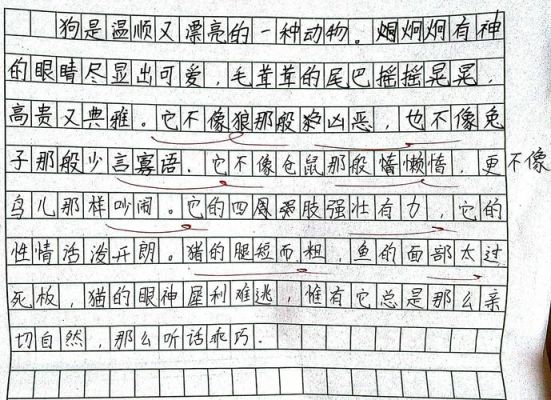 狗是温顺又漂亮的一种动物。炯炯炯有神
的眼睛尽显出可爱，毛茸茸的尾巴摇摇晃晃，
高贵又典雅。它不像狼那般凶恶，也不像兔
子那般少言寡语，它不像仓鼠那般懒惰，更不像
鸟儿那样吵闹。它的四肢强壮有力，它的
性情活泼开朗。猪的腿短而粗，鱼的面部太过
死板，猫的眼神犀利难逃，惟有它总是那么亲
切自然，那么听话乖巧．